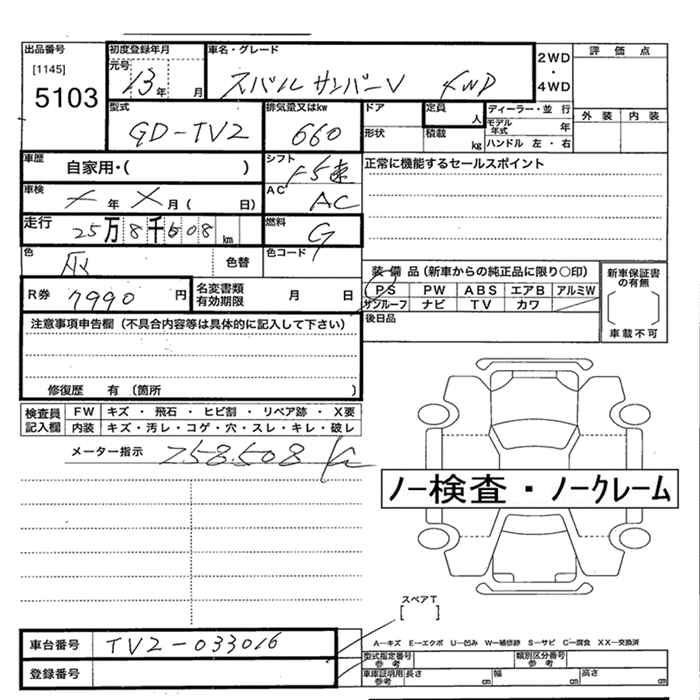 出品番号
[1145]
5103
初度登録年月
元号 13 年 月
車名・グレード
スバル サンバーV 4WD
2WD
・
4WD
評価点
外装 内装
型式
GD-TV2
排気量又はkw
660
ドア
形状
定員
人
積載
kg
ディーラー・並行
モデル
年式 年
ハンドル 左・右
車歴
自家用・( )
シフト
F5速
正常に機能するセールスポイント
車検
年 月 ( 日)
AC
AC
走行
25万8千508 km
燃料
G
色
灰
色替
色コード
装備品(新車からの純正品に限り○印)
PS PW ABS エアB アルミW
サンルーフ ナビ TV カワ
新車保証書
の有無
[ ]
車載不可
R券 7990 円
名変書類
有効期限 月 日
後日品
注意事項申告欄(不具合内容等は具体的に記入して下さい)
修復歴 有(箇所 )
検査員
記入欄
FW キズ・飛石・ヒビ割・リペア跡・X要
内装 キズ・汚レ・コゲ・穴・スレ・キレ・破レ
メーター指示 258508 K
ノー検査・ノークレーム
スペアT
[ ]
車台番号 TV2-033016
登録番号
A―キズ E―エクボ U―凹み W―補修跡 S―サビ C―腐食 XX―交換済
型式指定番号
参考
類別区分番号
参考
車庫証明用
参考
長さ cm 幅 cm 高さ cm